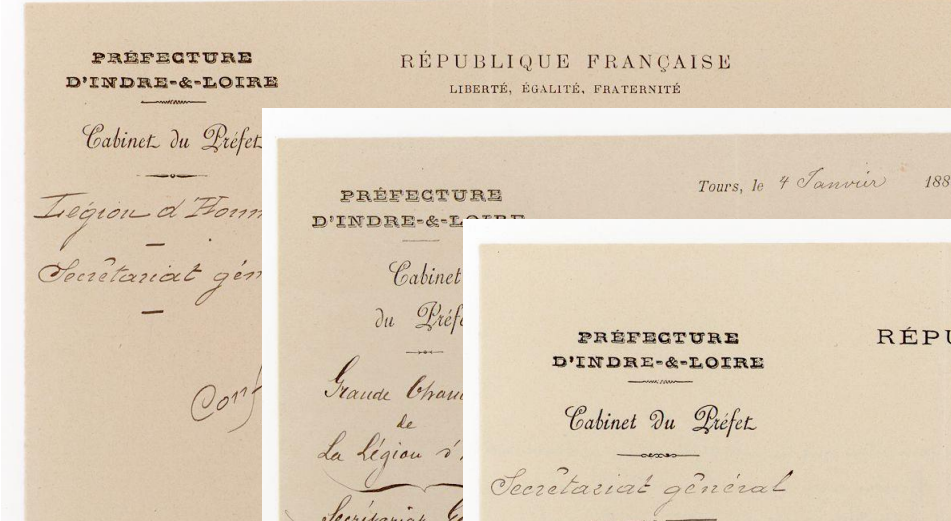 PRÉFECTURE
D'INDRE-&-LOIRE
Cabinet du Préfet
Légion d'Honn
Secrétariat gén
Conf
RÉPUBLIQUE FRANÇAISE
LIBERTÉ, ÉGALITÉ, FRATERNITÉ
PRÉFECTURE
D'INDRE-&-LOIRE
Cabinet
du Préfe
Grande Chan
de
La Légion d'
Secrétariat G
Tours, le 4 Janvier 188
PRÉFECTURE
D'INDRE-&-LOIRE
Cabinet du Préfet
Secrétariat général
RÉPU